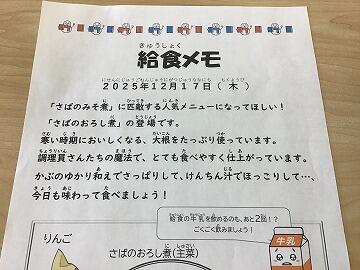 きゅうしょく
給食メモ
2025年12月17日(木)
「さばのみそ煮」に匹敵する人気メニューになってほしい!
「さばのおろし煮」の登場です。
寒い時期においしくなる、大根をたっぷり使っています。
調理員さんたちの魔法で、とても食べやすく仕上がっています。
かぶのゆかり和えでさっぱりして、けんちん汁でほっこりして…、
今日も味わって食べましょう!
給食の牛乳を飲めるのも、あと2回!?
ごくごく飲みましょう!
りんご
さばのおろし煮(主菜)
牛乳